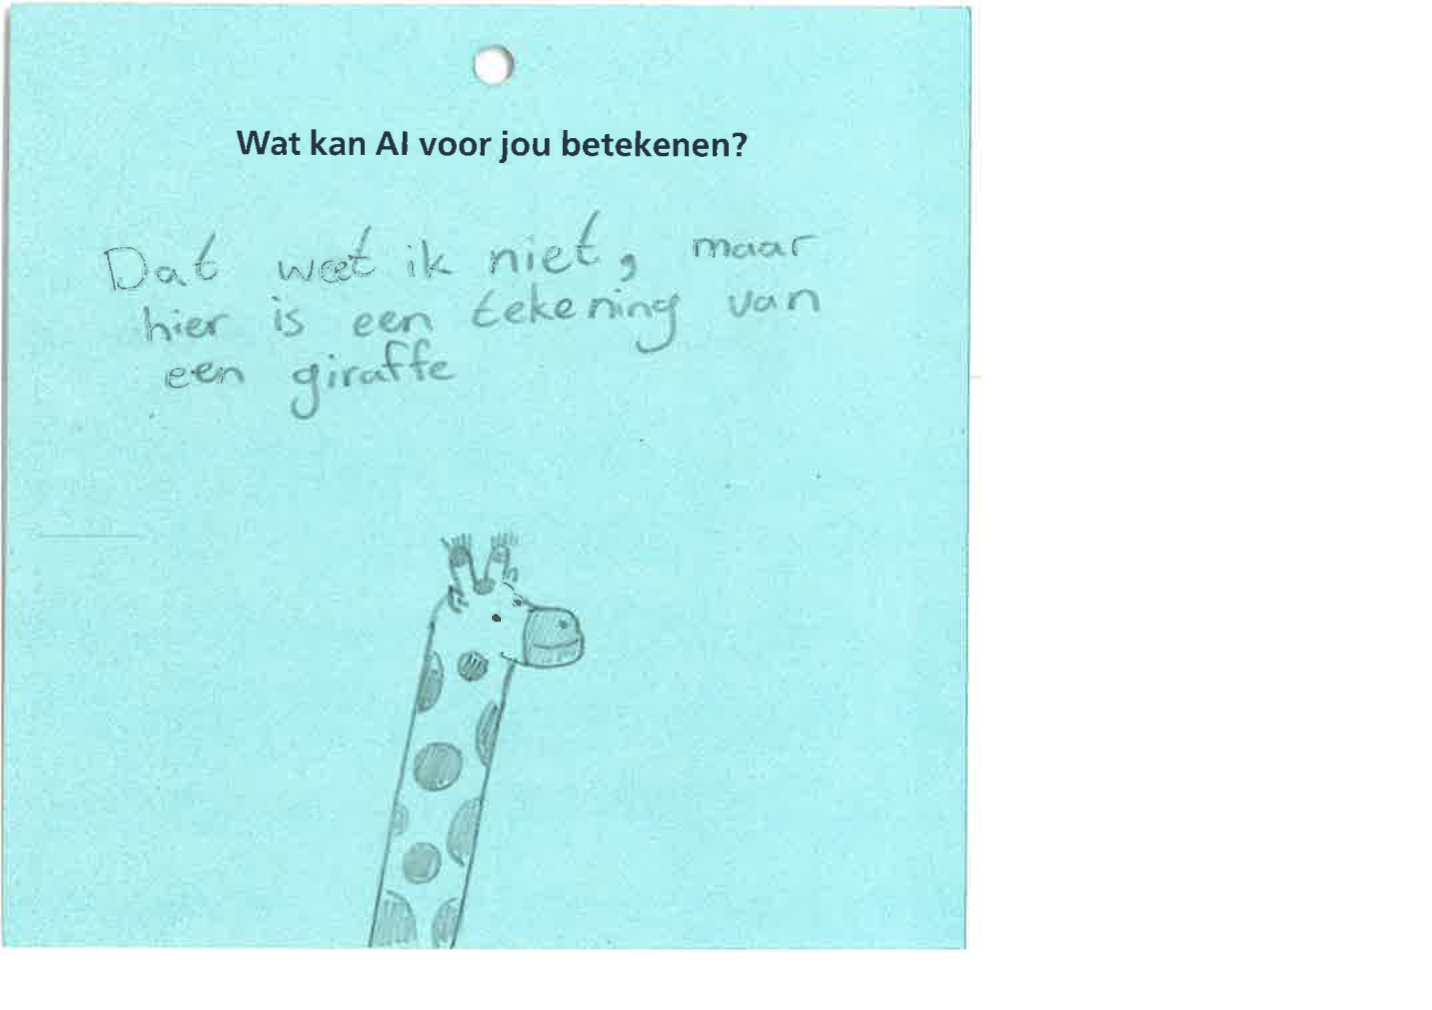 Wat kan AI voor jou betekenen?
Dat weet ik niet, maar
hier is een tekening van
een giraffe